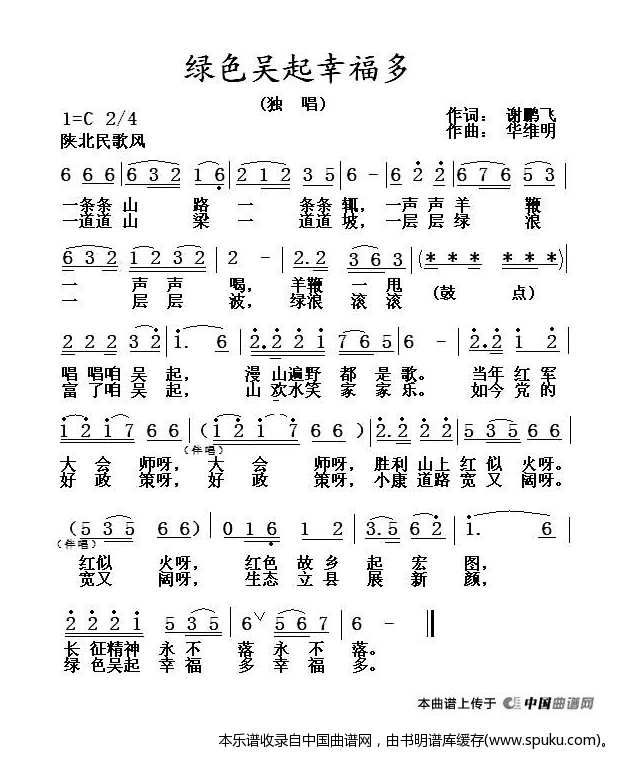 绿色吴起幸福多
(独 唱)
1=C 2/4
作词: 谢鹏飞
陕北民歌风
作曲: 华维明
6 6 6 | 6 3 2 1 6 | 2 1 2 3 5 | 6 - | 6 2 2 | 6 7 6 5 3 |
一条条 山 路 一 条条 辄, 一声 声 羊 鞭
一道道 山 梁 一 道道 坡, 一层 层 绿 浪
6 3 2 1 2 3 2 | 2 - | 2. 2 3 6 3 | (* * * * * *) |
一 声 声 喝, 羊鞭 一 甩 (鼓 点)
一 层 层 波, 绿浪 滚 滚
2 2 2 3 2 | 1. 6 | 2. 2 2 1 7 6 5 | 6 - | 2. 2 1 2 |
唱 唱咱 吴 起, 漫 山遍野 都 是 歌。 当年 红 军
富 了咱 吴 起, 山 欢水笑 家 家 乐。 如今 党 的
1 2 1 7 6 6 | (1 2 1 7 6 6) | 2. 2 2 2 | 5 3 5 6 6 |
(伴唱)
大 会 师呀, 大 会 师呀, 胜利 山上 红 似 火呀。
好 政 策呀, 好 政 策呀, 小康 道路 宽 又 阔呀。
(5 3 5 6 6) | 0 1 6 1 2 | 3. 5 6 2 | 1. 6 |
(伴唱)
红似 火呀, 红色 故 乡 起 宏 图,
宽又 阔呀, 生态 立 县 展 新 颜,
2 2 2 1 | 5 3 5 | 6 ∨ 5 6 7 | 6 - ‖
长 征精神 永 不 落 永 不 落。
绿 色吴起 幸 福 多 幸 福 多。
本曲谱上传于 中国曲谱网
本乐谱收录自中国曲谱网，由书明谱库缓存(www.spuku.com)。